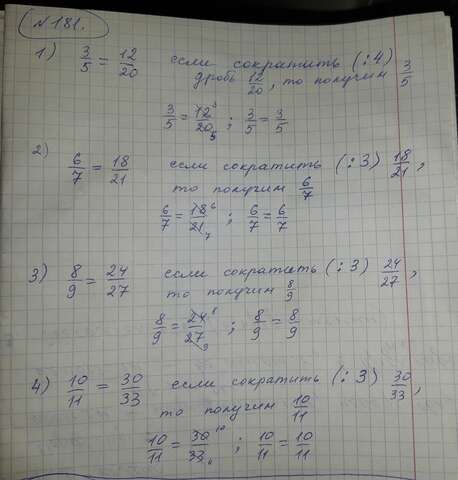 № 181.
1) 3/5 = 12/20 если сократить (:4)
дробь 12/20, то получим 3/5
3/5 = 12/20 3 5 ; 3/5 = 3/5
2) 6/7 = 18/21 если сократить (:3) 18/21,
то получим 6/7
6/7 = 18/21 6 7 ; 6/7 = 6/7
3) 8/9 = 24/27 если сократить (:3) 24/27,
то получим 8/9
8/9 = 24/27 8 9 ; 8/9 = 8/9
4) 10/11 = 30/33 если сократить (:3) 30/33,
то получим 10/11
10/11 = 30/33 10 ; 10/11 = 10/11